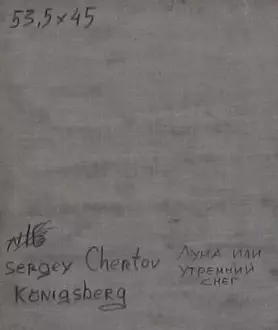 53,5×45
Sergey Chertov
Königsberg
Луна или
утренний
снег